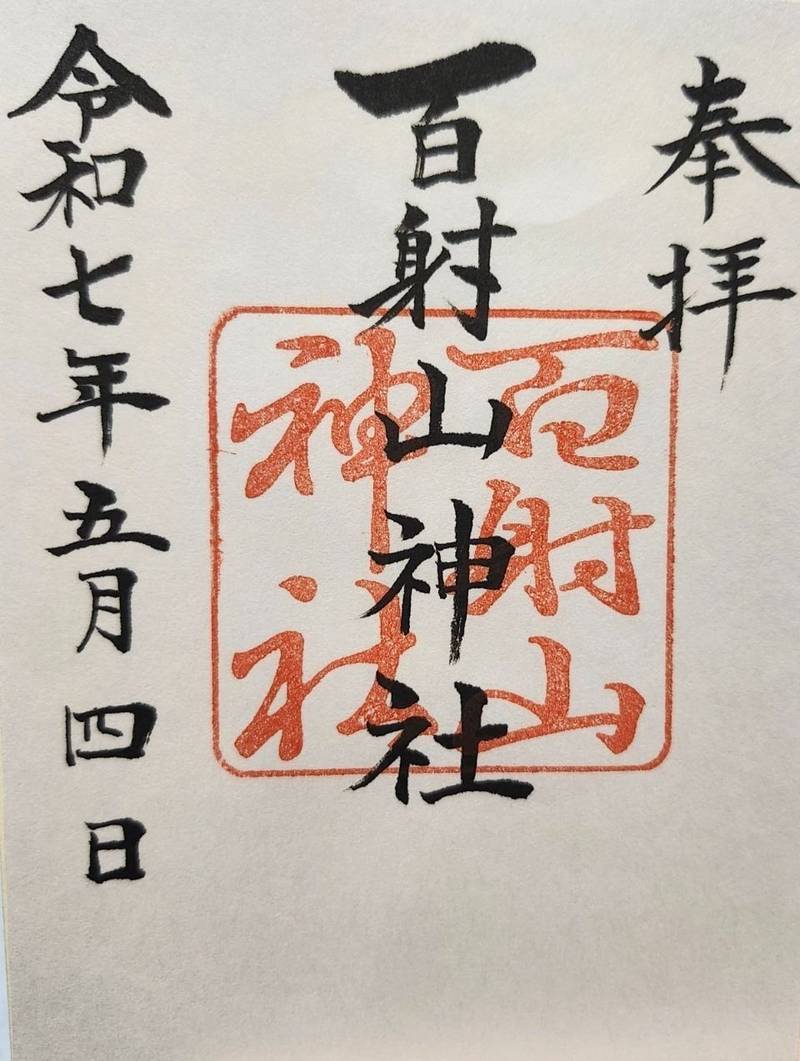 奉拝
百射山神社
百射山
神社
令和七年五月四日